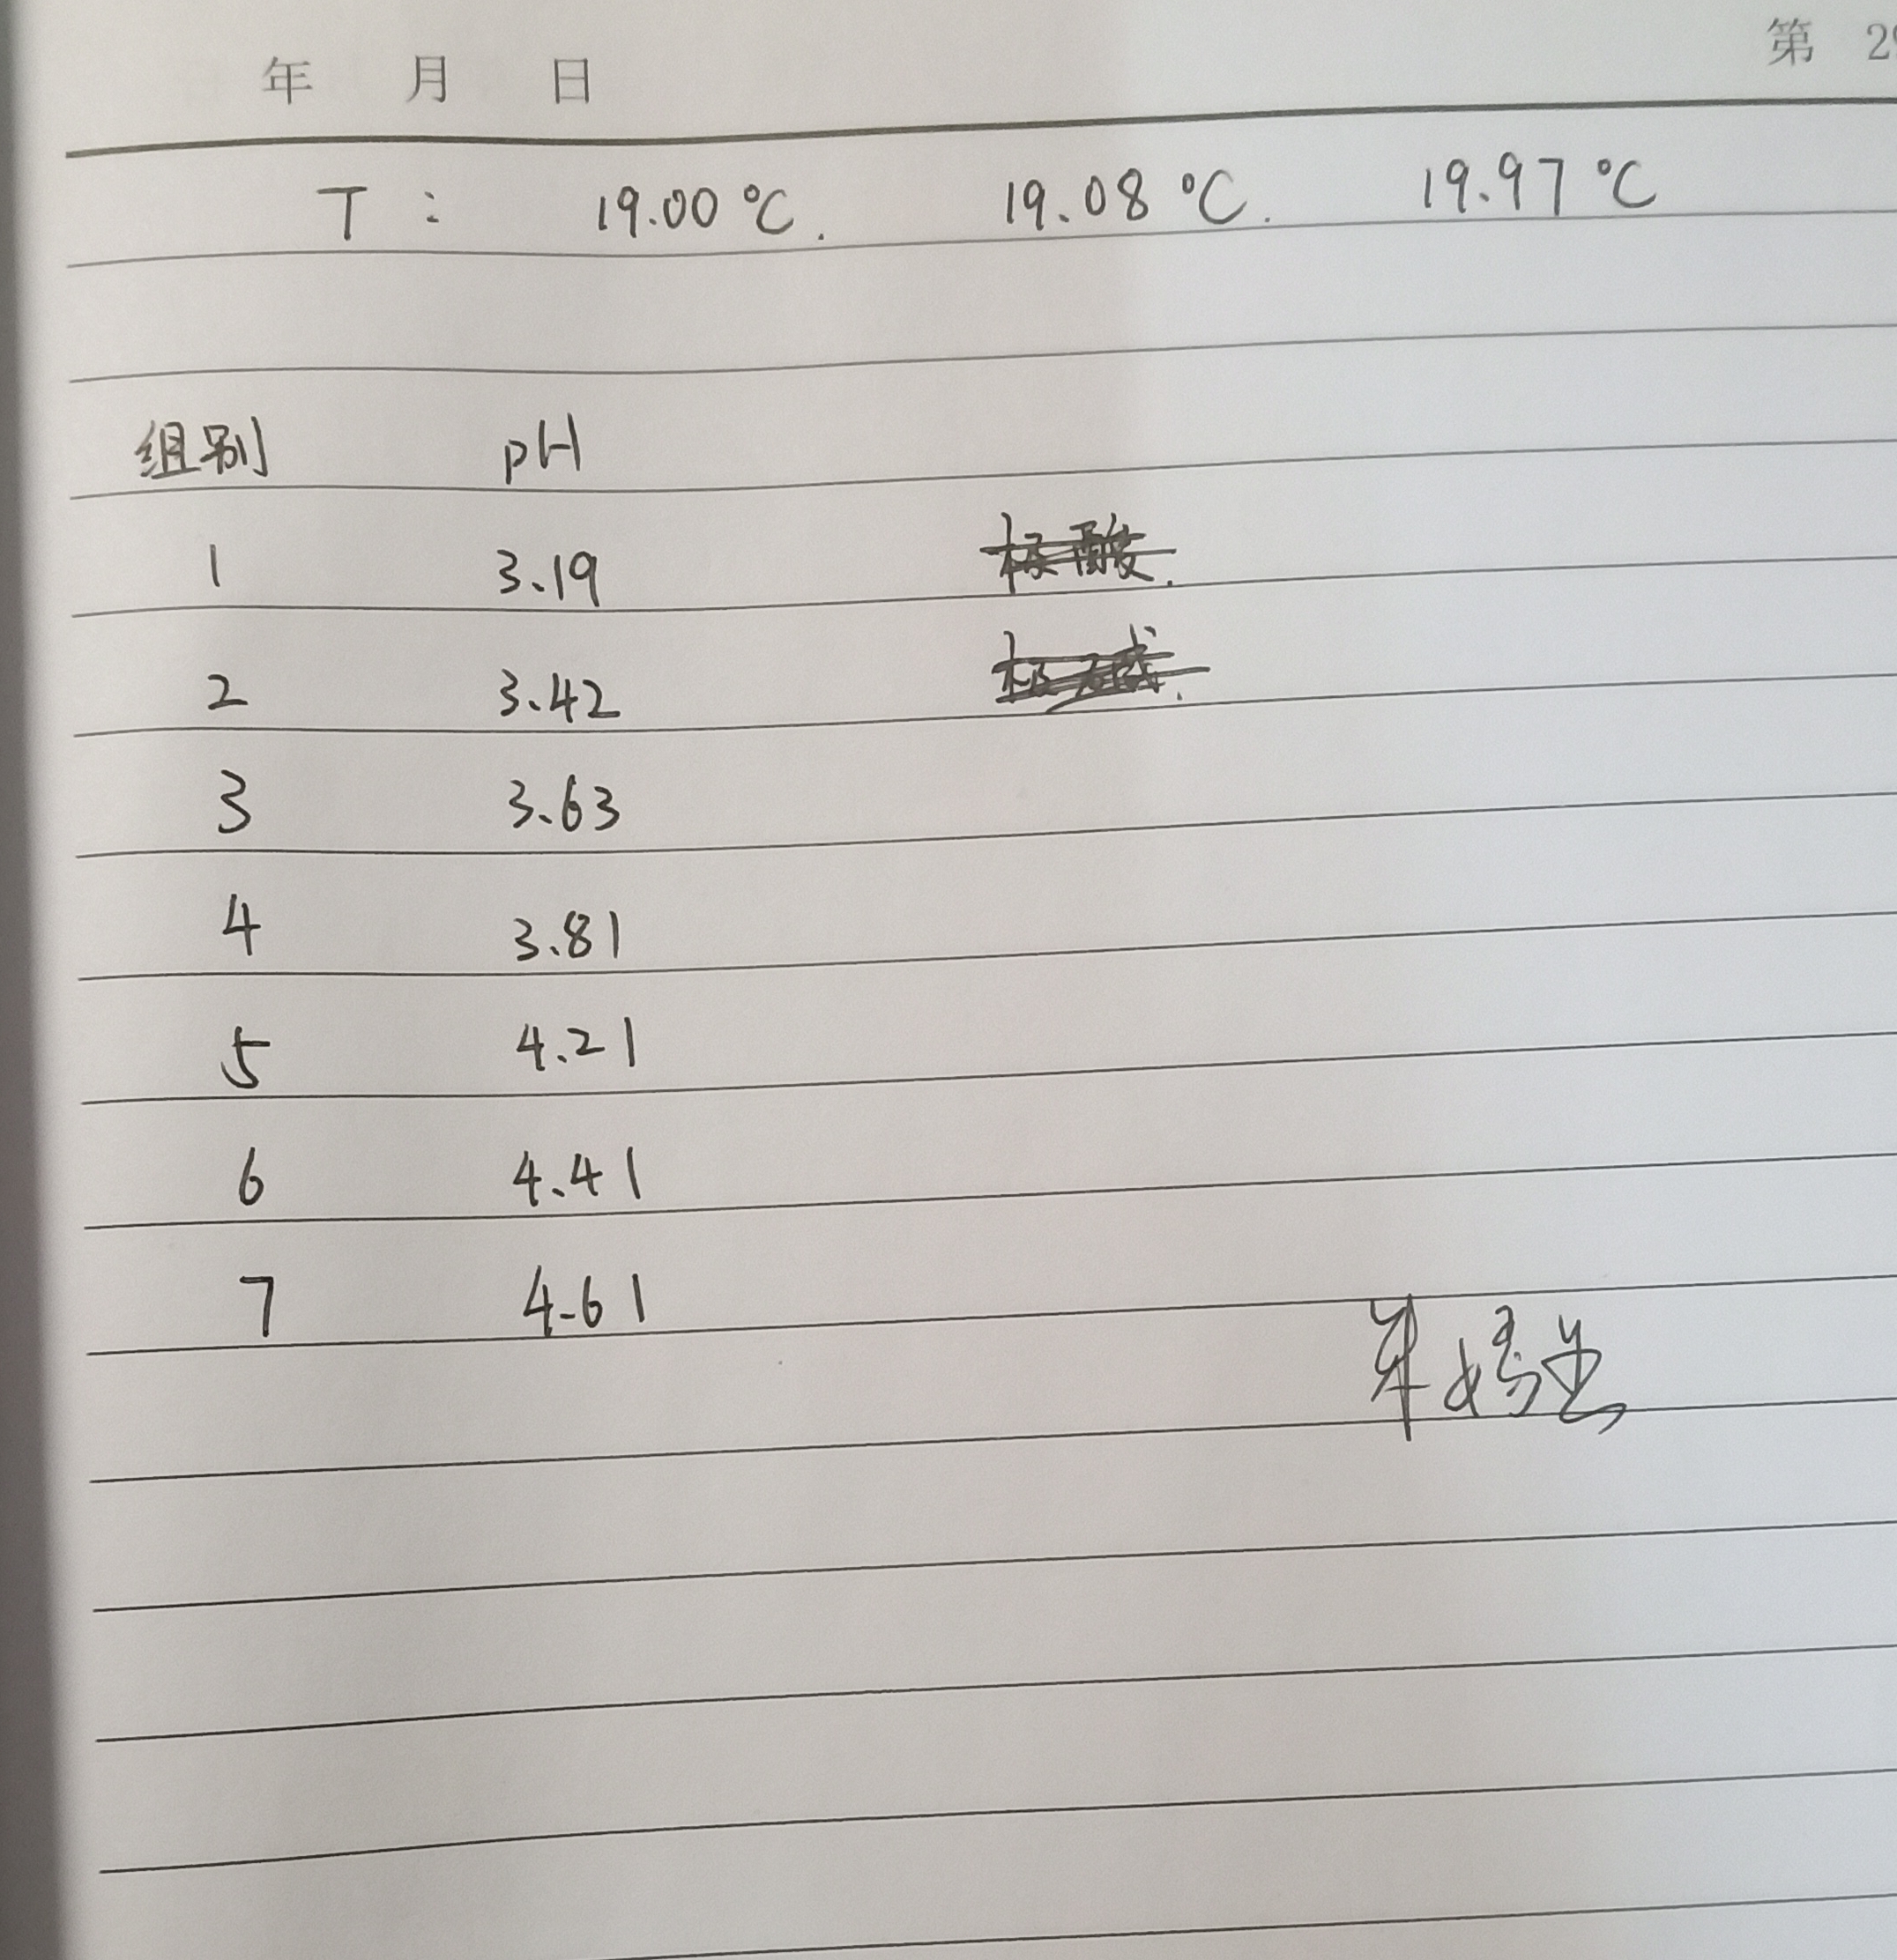 年 月 日 第 2
T : 19.00 ℃. 19.08 ℃. 19.97 ℃
组别 pH
1 3.19 标酸.
2 3.42 标碱.
3 3.63
4 3.81
5 4.21
6 4.41
7 4.61